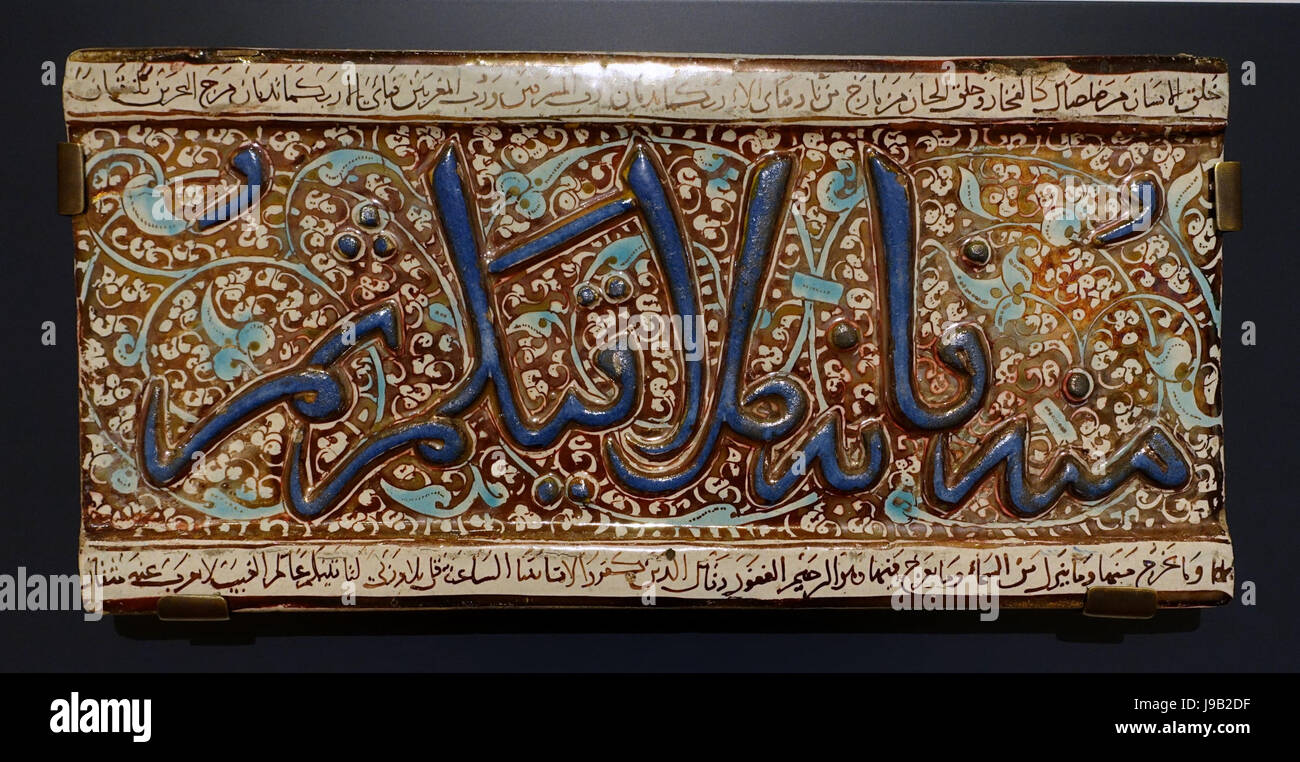 خلق الانسان من صلصال كالفخار وخلق الجان من مارج من نار فباى الا ربكما تكذبان رب المشرقين ورب المغربين فباى الا ربكما تكذبان مرج البحرين يلتقيان
منه فانه ملاقيكم ثم
وما يخرج منها وما ينزل من السماء وما يعرج فيها وهو الرحيم الغفور وقال الذين كفروا لا تاتينا الساعة قل بلى وربى لتاتينكم عالم الغيب لا يعزب عنه مثقال
alamy
Image ID: 2J9B2DF
www.alamy.com